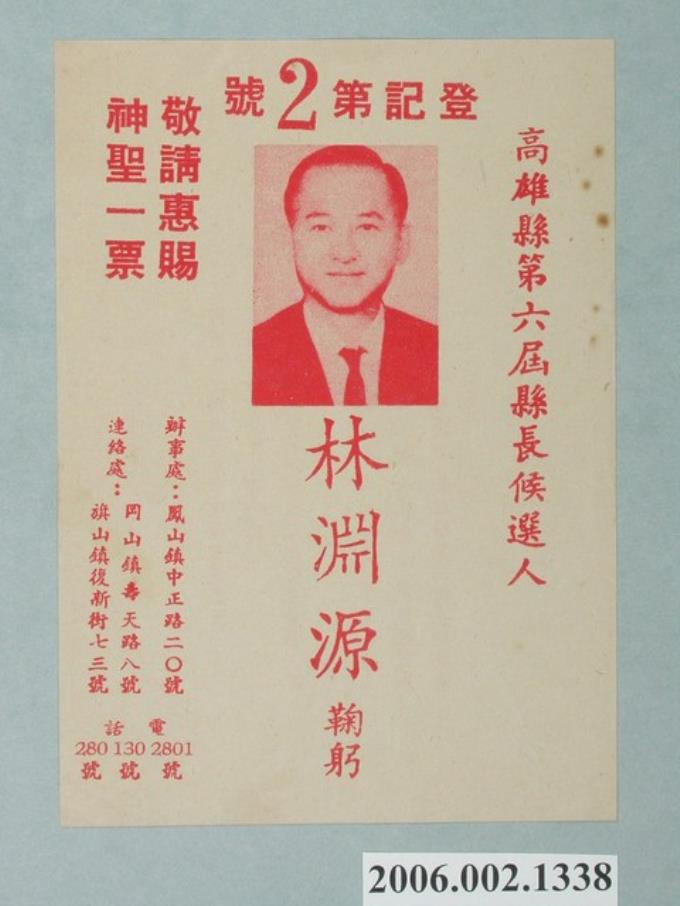 登記第2號
高雄縣第六屆縣長候選人
林淵源
鞠躬
敬請惠賜
神聖一票
辦事處：鳳山鎮中正路二〇號
連絡處：岡山鎮壽天路八號
旗山鎮復新街七三號
電話
2801號
130號
280號
2006.002.1338